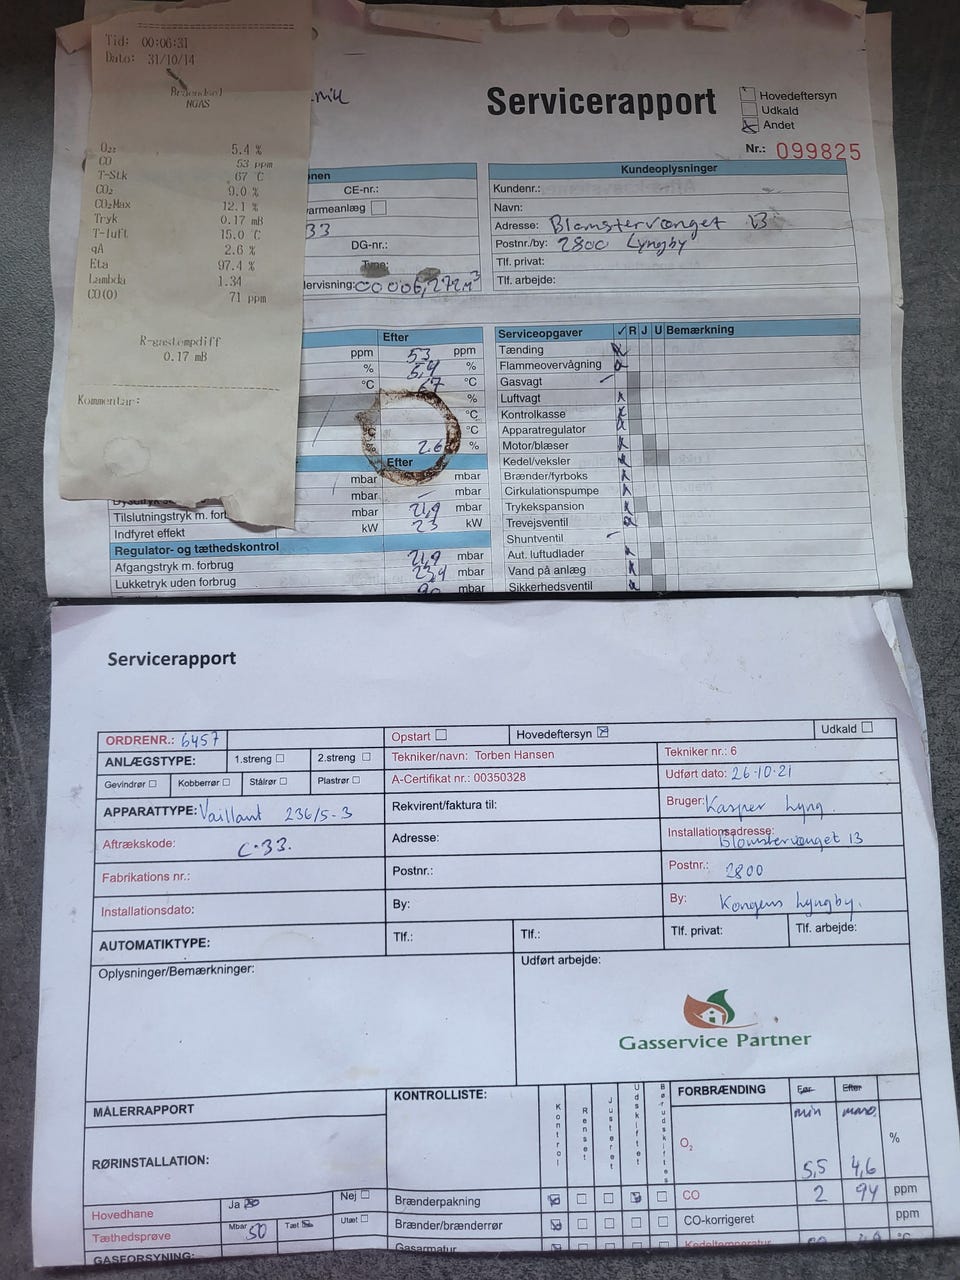 Tid: 00:06:31
Dato: 31/10/14
Brændsel
NGAS
O₂: 5.4 %
CO 53 ppm
T-Stk 67 °C
CO₂ 9.0 %
CO₂Max 12.1 %
Tryk 0.17 mB
T-luft 15.0 °C
qA 2.6 %
Eta 97.4 %
Lambda 1.34
CO(0) 71 ppm
R-gastempdiff
0.17 mB
Kommentar:
Servicerapport
Hovedeftersyn
Udkald
Andet
Nr.: 099825
onen
CE-nr.:
varmeanlæg
33
DG-nr.:
Type:
lervisning: 00006,272m³
Kundeoplysninger
Kundenr.:
Navn:
Adresse: Blomstervænget 13
Postnr./by: 2800 Lyngby
Tlf. privat:
Tlf. arbejde:
Efter
ppm 53 ppm
% 5,4 %
°C 67 °C
%
°C
°C °C
% 2.6 %
Efter
mbar mbar
mbar – mbar
Tilslutningstryk m. fort mbar 21,9 mbar
Indfyret effekt kW 23 kW
Regulator- og tæthedskontrol
Afgangstryk m. forbrug 21,9 mbar
Lukketryk uden forbrug 23,4 mbar
mbar
Serviceopgaver ✓ R J U Bemærkning
Tænding
Flammeovervågning
Gasvagt
Luftvagt
Kontrolkasse
Apparatregulator
Motor/blæser
Kedel/veksler
Brænder/fyrboks
Cirkulationspumpe
Trykekspansion
Trevejsventil
Shuntventil
Aut. luftudlader
Vand på anlæg
Sikkerhedsventil
Servicerapport
ORDRENR.: 6457
Opstart
Hovedeftersyn
Udkald
ANLÆGSTYPE: 1.streng 2.streng
Gevindrør Kobberrør Stålrør Plastrør
Tekniker/navn: Torben Hansen
Tekniker nr.: 6
A-Certifikat nr.: 00350328
Udført dato: 26-10-21
APPARATTYPE: Vaillant 236/5-3
Rekvirent/faktura til:
Bruger: Kasper Lyng.
Aftrækskode: C-33.
Adresse:
Installationsadresse: Blomstervænget 13
Fabrikations nr.:
Postnr.:
Postnr.: 2800
Installationsdato:
By:
By: Kongens Lyngby.
AUTOMATIKTYPE:
Tlf.:
Tlf.:
Tlf. privat:
Tlf. arbejde:
Oplysninger/Bemærkninger:
Udført arbejde:
Gasservice Partner
MÅLERRAPPORT
RØRINSTALLATION:
Hovedhane Ja Nej
Tæthedsprøve Mbar 50 Tæt Utæt
GASFORSYNING:
KONTROLLISTE: Kontrol Renset Justeret Udskiftet Bør udskiftes
Brænderpakning
Brænder/brænderrør
Gasarmatur
FORBRÆNDING Før Efter
min max.
O₂ 5,5 4,6 %
CO 2 94 ppm
CO-korrigeret ppm
Kedeltemperatur °C